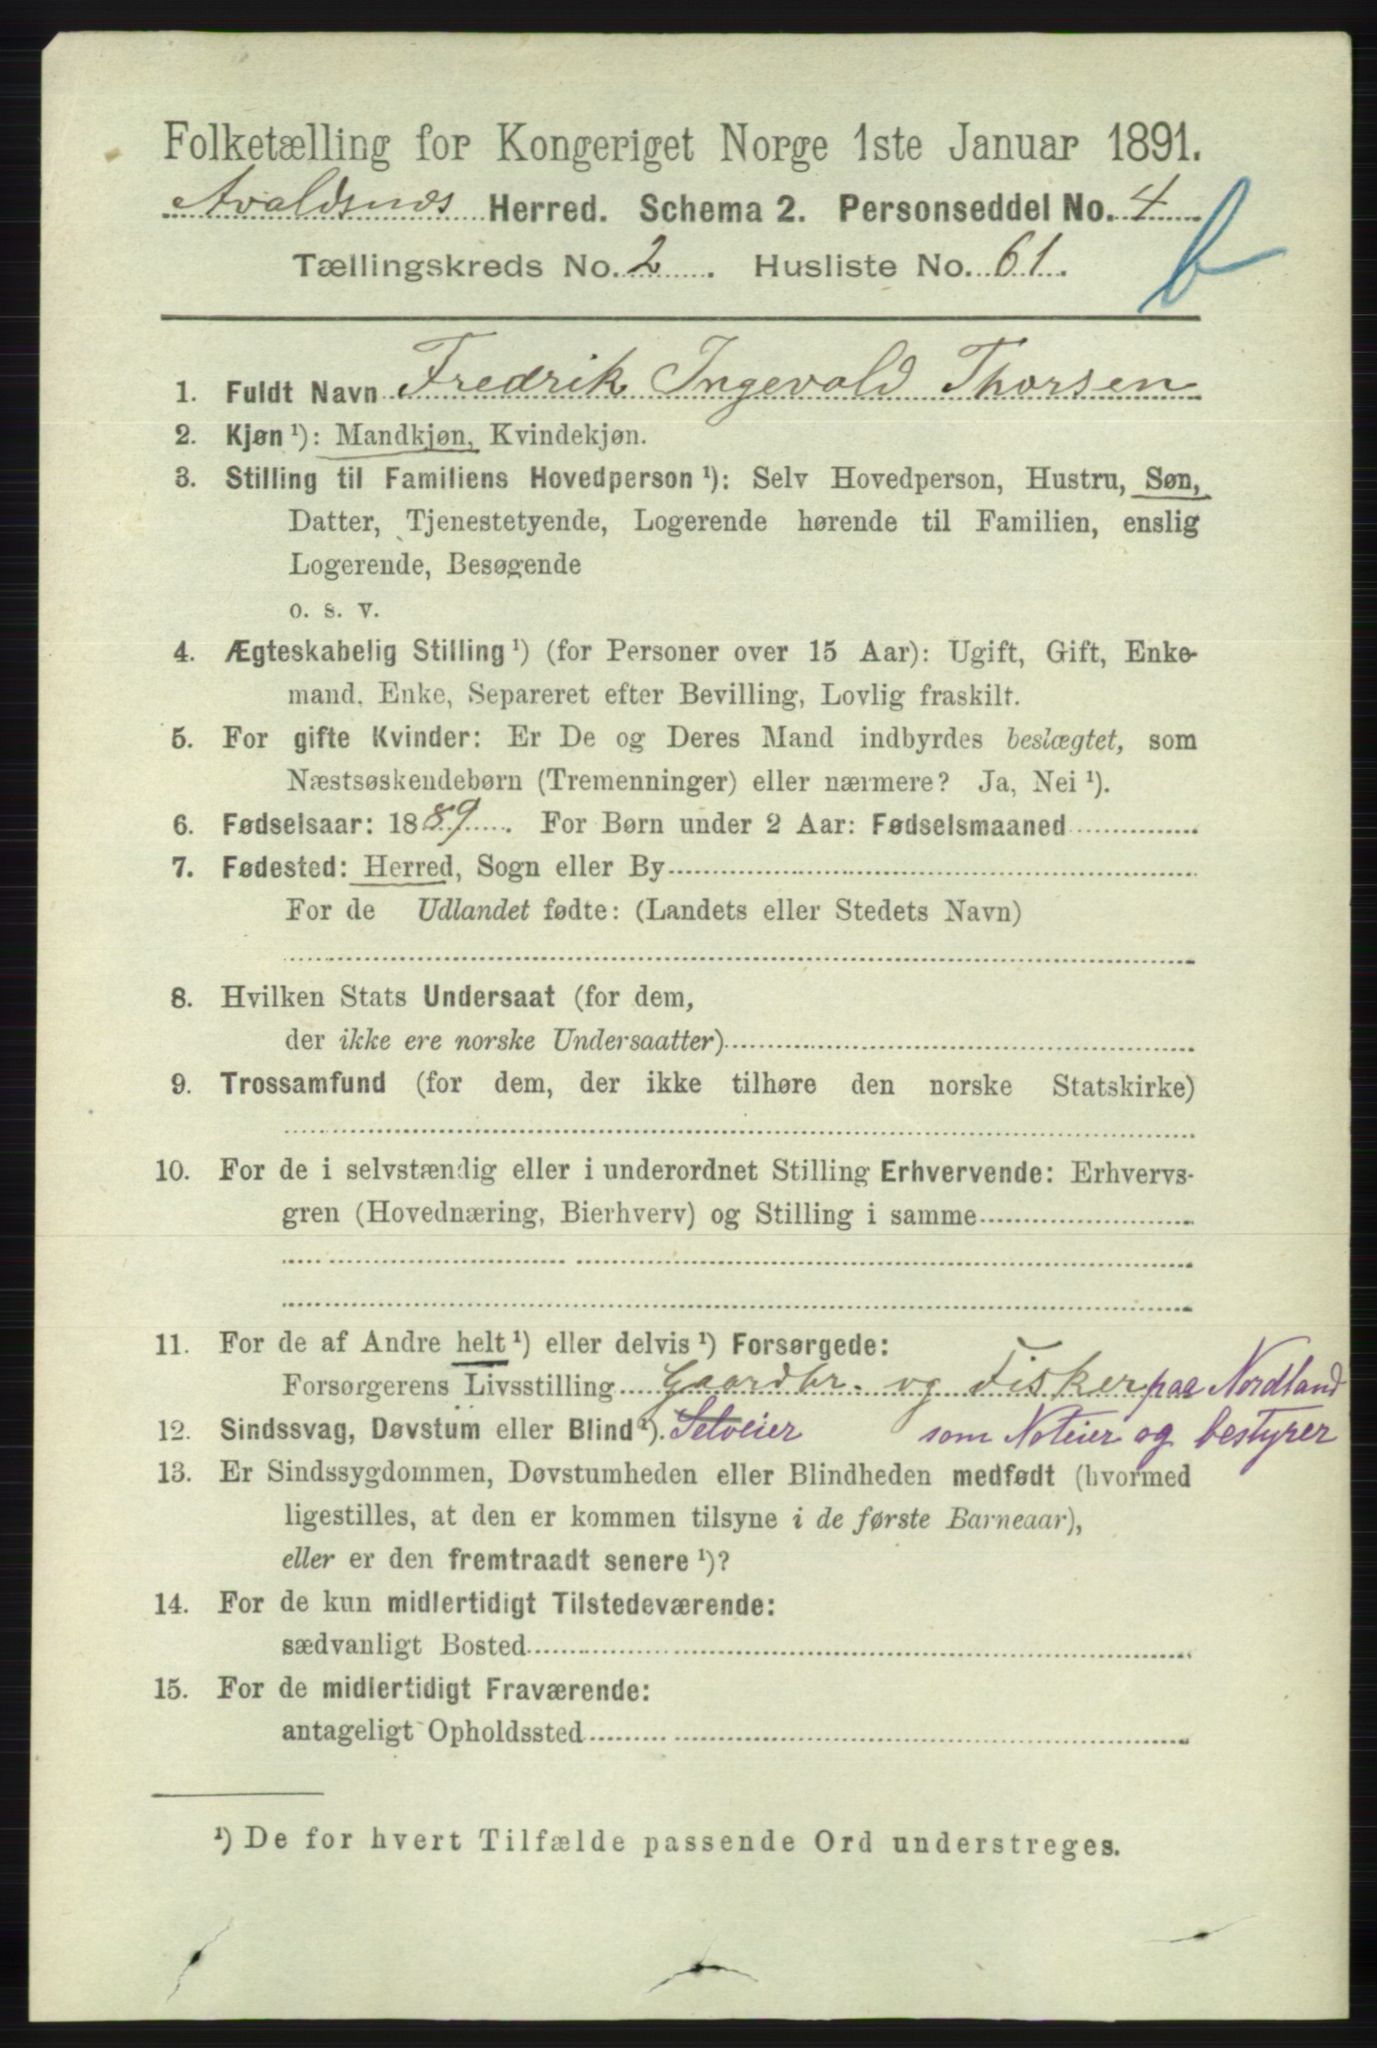 Folketælling for Kongeriget Norge 1ste Januar 1891.
Avaldsnes Herred. Schema 2. Personseddel No. 4
b
Tællingskreds No. 2. Husliste No. 61.
1. Fuldt Navn Fredrik Ingevald Thorsen
2. Kjøn ¹): Mandkjøn, Kvindekjøn.
3. Stilling til Familiens Hovedperson ¹): Selv Hovedperson, Hustru, Søn,
Datter, Tjenestetyende, Logerende hørende til Familien, enslig
Logerende, Besøgende
o. s. v.
4. Ægteskabelig Stilling ¹) (for Personer over 15 Aar): Ugift, Gift, Enke-
mand, Enke, Separeret efter Bevilling, Lovlig fraskilt.
5. For gifte Kvinder: Er De og Deres Mand indbyrdes beslægtet, som
Næstsøskendebørn (Tremenninger) eller nærmere? Ja, Nei ¹).
6. Fødselsaar: 1889. For Børn under 2 Aar: Fødselsmaaned
7. Fødested: Herred, Sogn eller By
For de Udlandet fødte: (Landets eller Stedets Navn)
8. Hvilken Stats Undersaat (for dem,
der ikke ere norske Undersaatter)
9. Trossamfund (for dem, der ikke tilhøre den norske Statskirke)
10. For de i selvstændig eller i underordnet Stilling Erhvervende: Erhvervs-
gren (Hovednæring, Bierhverv) og Stilling i samme
11. For de af Andre helt ¹) eller delvis ¹) Forsørgede:
Forsørgerens Livsstilling Gaardbr. og Fisker paa Nordland
12. Sindssvag, Døvstum eller Blind ¹). Selveier som Noteier og bestyrer
13. Er Sindssygdommen, Døvstumheden eller Blindheden medfødt (hvormed
ligestilles, at den er kommen tilsyne i de første Barneaar),
eller er den fremtraadt senere ¹)?
14. For de kun midlertidigt Tilstedeværende:
sædvanligt Bosted
15. For de midlertidigt Fraværende:
antageligt Opholdssted
¹) De for hvert Tilfælde passende Ord understreges.